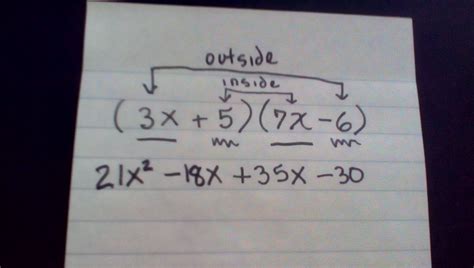 outside
inside
(3x + 5)(7x - 6)
21x² - 18x + 35x - 30